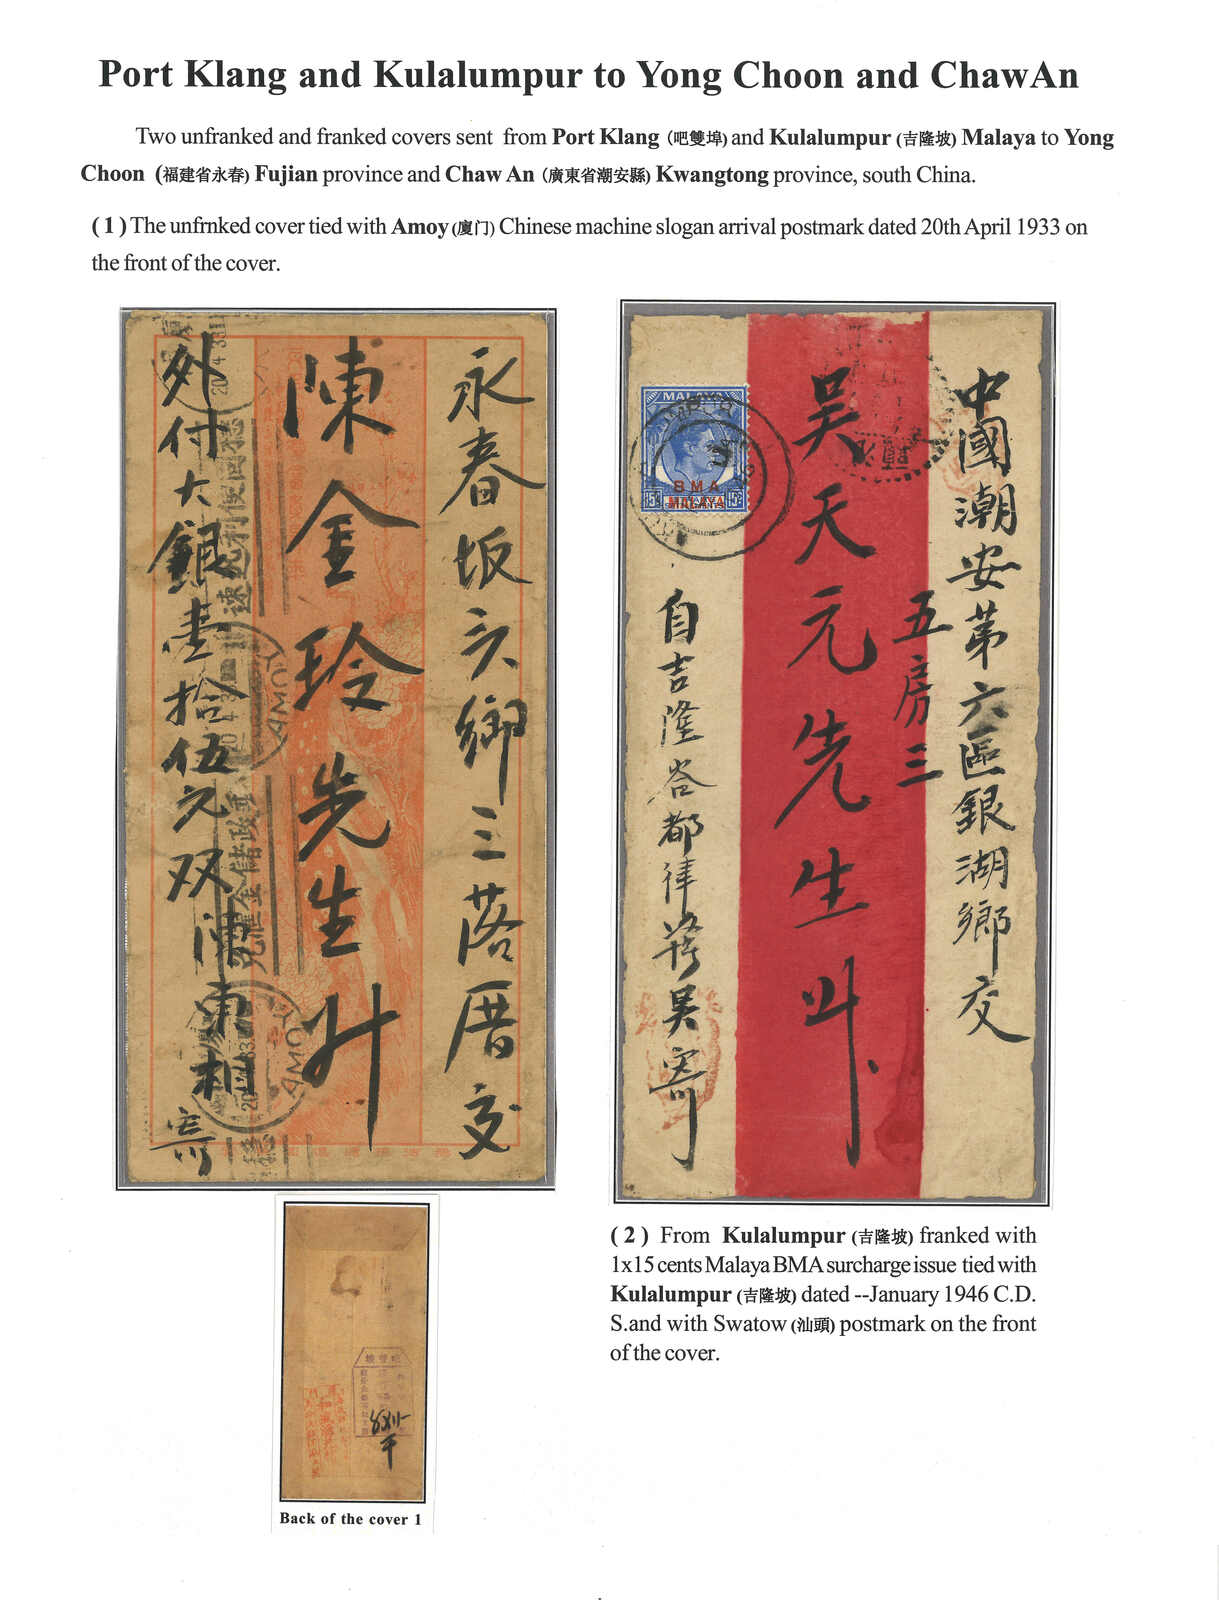 Port Klang and Kulalumpur to Yong Choon and ChawAn
Two unfranked and franked covers sent from Port Klang (吧雙埠) and Kulalumpur (吉隆坡) Malaya to Yong
Choon (福建省永春) Fujian province and Chaw An (廣東省潮安縣) Kwangtong province, south China.
( 1 ) The unfrnked cover tied with Amoy (廈门) Chinese machine slogan arrival postmark dated 20th April 1933 on
the front of the cover.
永春坂头鄉三落厝交
陳金玲先生升
外付大銀壹拾伍元双
陳東相寄
AMOY
AMOY
MALAYA
BMA
MALAYA
中國潮安第六區銀湖鄉交
五房三
吴天元先生升
自吉隆
都律
吴寄
Back of the cover 1
( 2 ) From Kulalumpur (吉隆坡) franked with
1x15 cents Malaya BMA surcharge issue tied with
Kulalumpur (吉隆坡) dated --January 1946 C.D.
S.and with Swatow (汕頭) postmark on the front
of the cover.